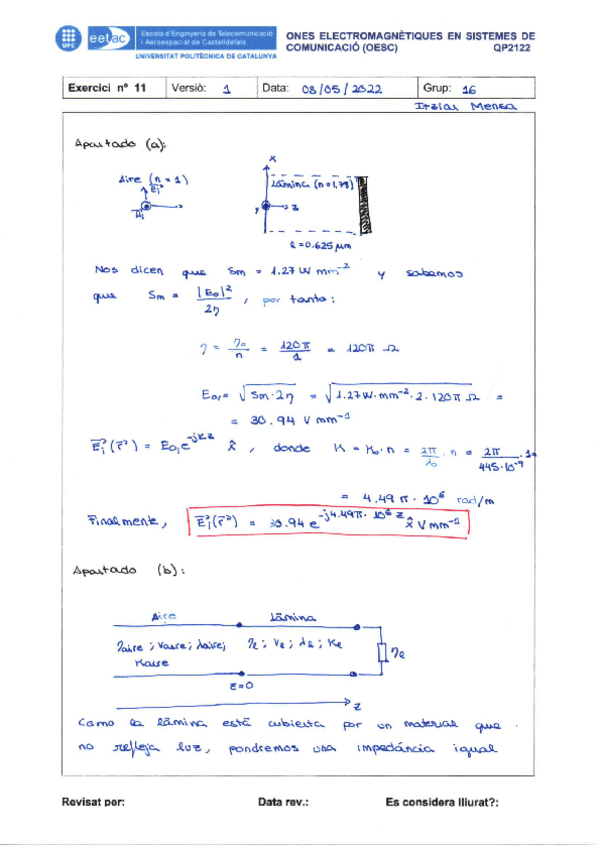 UPC eetac Escola d'Enginyeria de Telecomunicació i Aeroespacial de Castelldefels
UNIVERSITAT POLITÈCNICA DE CATALUNYA
ONES ELECTROMAGNÈTIQUES EN SISTEMES DE COMUNICACIÓ (OESC) QP2122
Exercici nº 11 Versió: 1 Data: 03/05/2022 Grup: 16
Itziar Mensa
Apartado (a):
Aire (n = 1)
Ei
Hi
x
Lámina (n=1,78)
y z
l = 0.625 μm
Nos dicen que Sm = 1.27 W mm⁻² y sabemos
que Sm = |E₀|² / 2η , por tanto:
η = η₀/n = 120π/1 = 120π Ω
E₀ᵢ = √(Sm·2η) = √(1.27 W·mm⁻²·2·120π Ω) =
= 30.94 V mm⁻¹
E⃗ᵢ(r⃗) = E₀ᵢ e^(-jkz) x̂ , donde K = K₀·n = 2π/λ₀ · n = 2π/(445·10⁻⁹) · 1=
= 4.49 π · 10⁶ rad/m
Finalmente, E⃗ᵢ(r⃗) = 30.94 e^(-j4.49π·10⁶ z) x̂ V mm⁻¹
Apartado (b):
Aire Lámina
ηaire ; vaire ; λaire; ηe ; ve ; λe ; Ke ηe
Kaire
z=0
z
Como la lámina está cubierta por un material que
no refleja luz, pondremos una impedáncia igual
Revisat per: Data rev.: Es considera lliurat?: